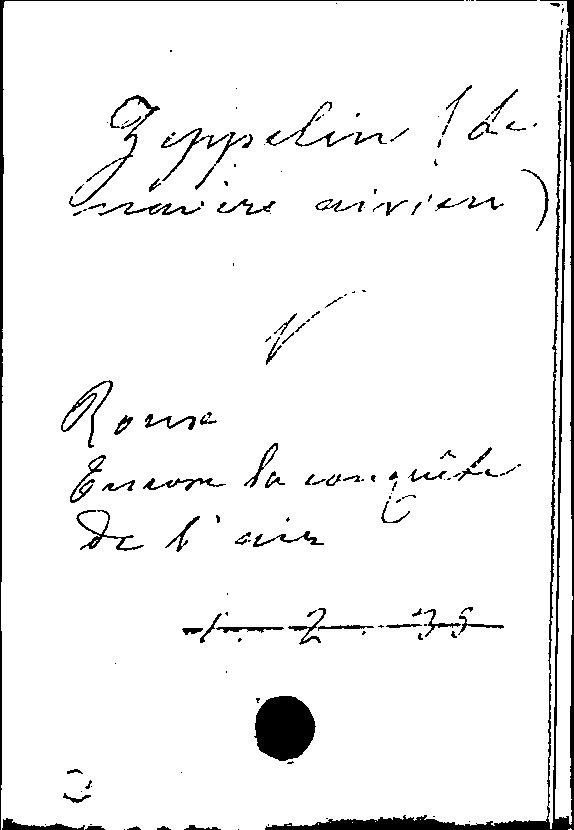 Zeppelin (de
navire airien)
V
Roux
Encore la conquête
de l'air
1. 2. 35